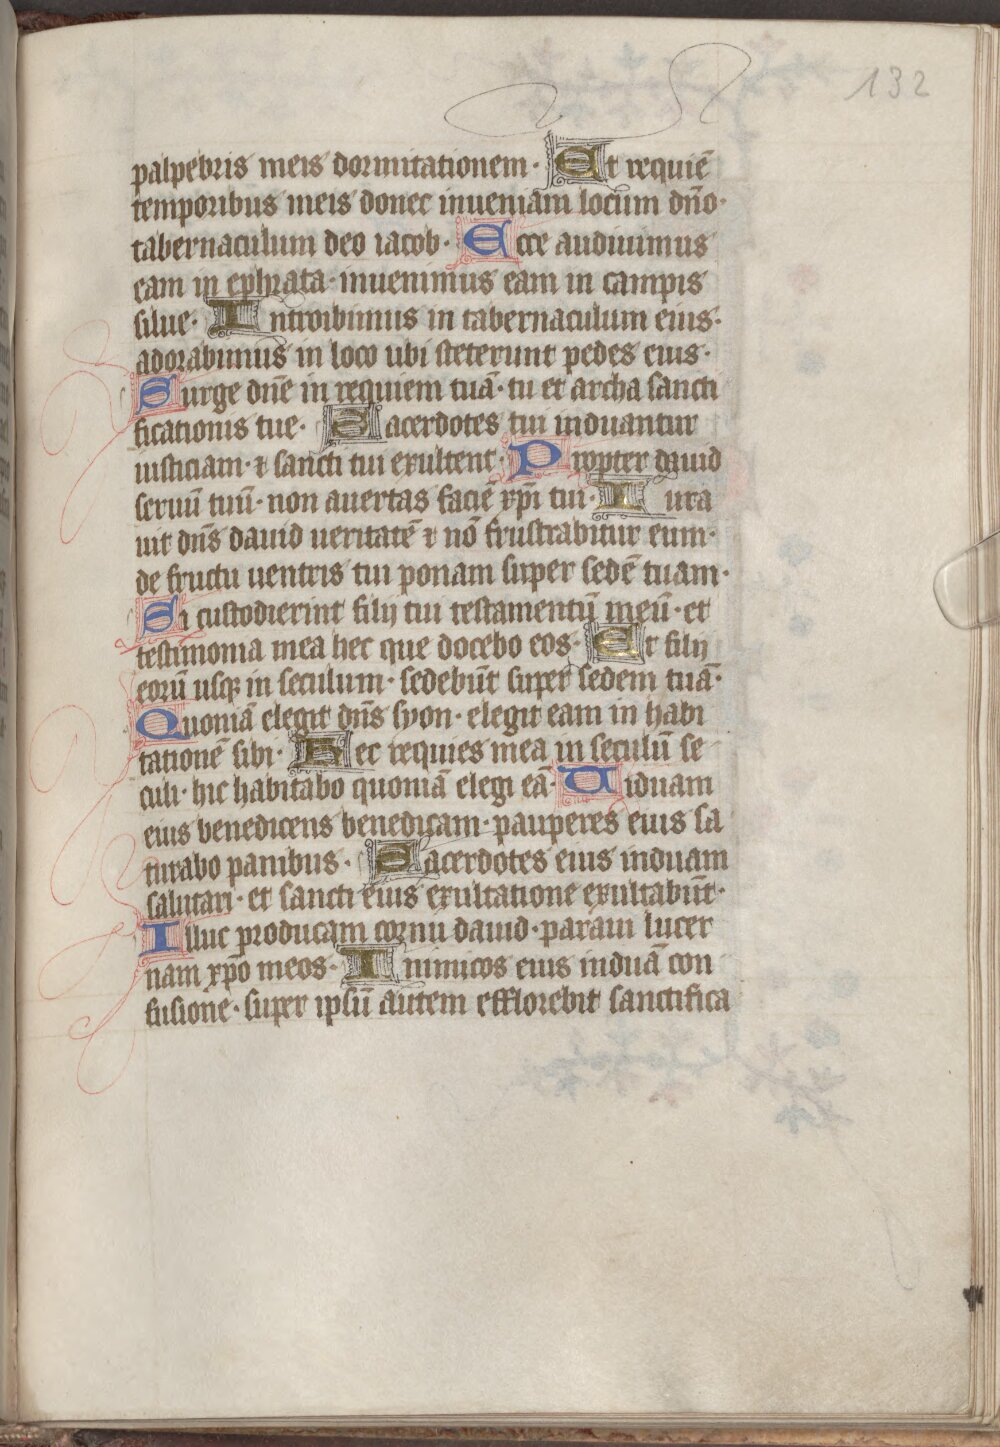 132
palpebris meis dormitationem· Et requiē
temporibus meis donec inueniam locum dn̄o·
tabernaculum deo iacob· Ecce audiuimus
eam in ephrata· inuenimus eam in campis
silue· Introibimus in tabernaculum eius·
adorabimus in loco ubi steterunt pedes eius·
Surge dn̄e in requiem tuā· tu et archa sancti
ficationis tue· Sacerdotes tui induantur
iusticiam· ⁊ sancti tui exultent· Propter dauid
seruū tuū· non auertas faciē xp̄i tui· Iura
uit dn̄s dauid ueritatē ⁊ nō frustrabitur eum·
de fructu uentris tui ponam super sedē tuam·
Si custodierint filij tui testamentū meū· et
testimonia mea hec que docebo eos· Et filij
eorū usqꝫ in seculum· sedebūt super sedem tuā·
Quoniā elegit dn̄s syon· elegit eam in habi
tationē sibi· Hec requies mea in seculū se
culi· hic habitabo quoniā elegi eā· Uiduam
eius benedicens benedicam· pauperes eius sa
turabo panibus· Sacerdotes eius induam
salutari· et sancti eius exultatione exultabūt·
Illuc producam cornu dauid· paraui lucer
nam xp̄o meos· Inimicos eius induā con
fusione· super ipsū autem efflorebit sanctifica